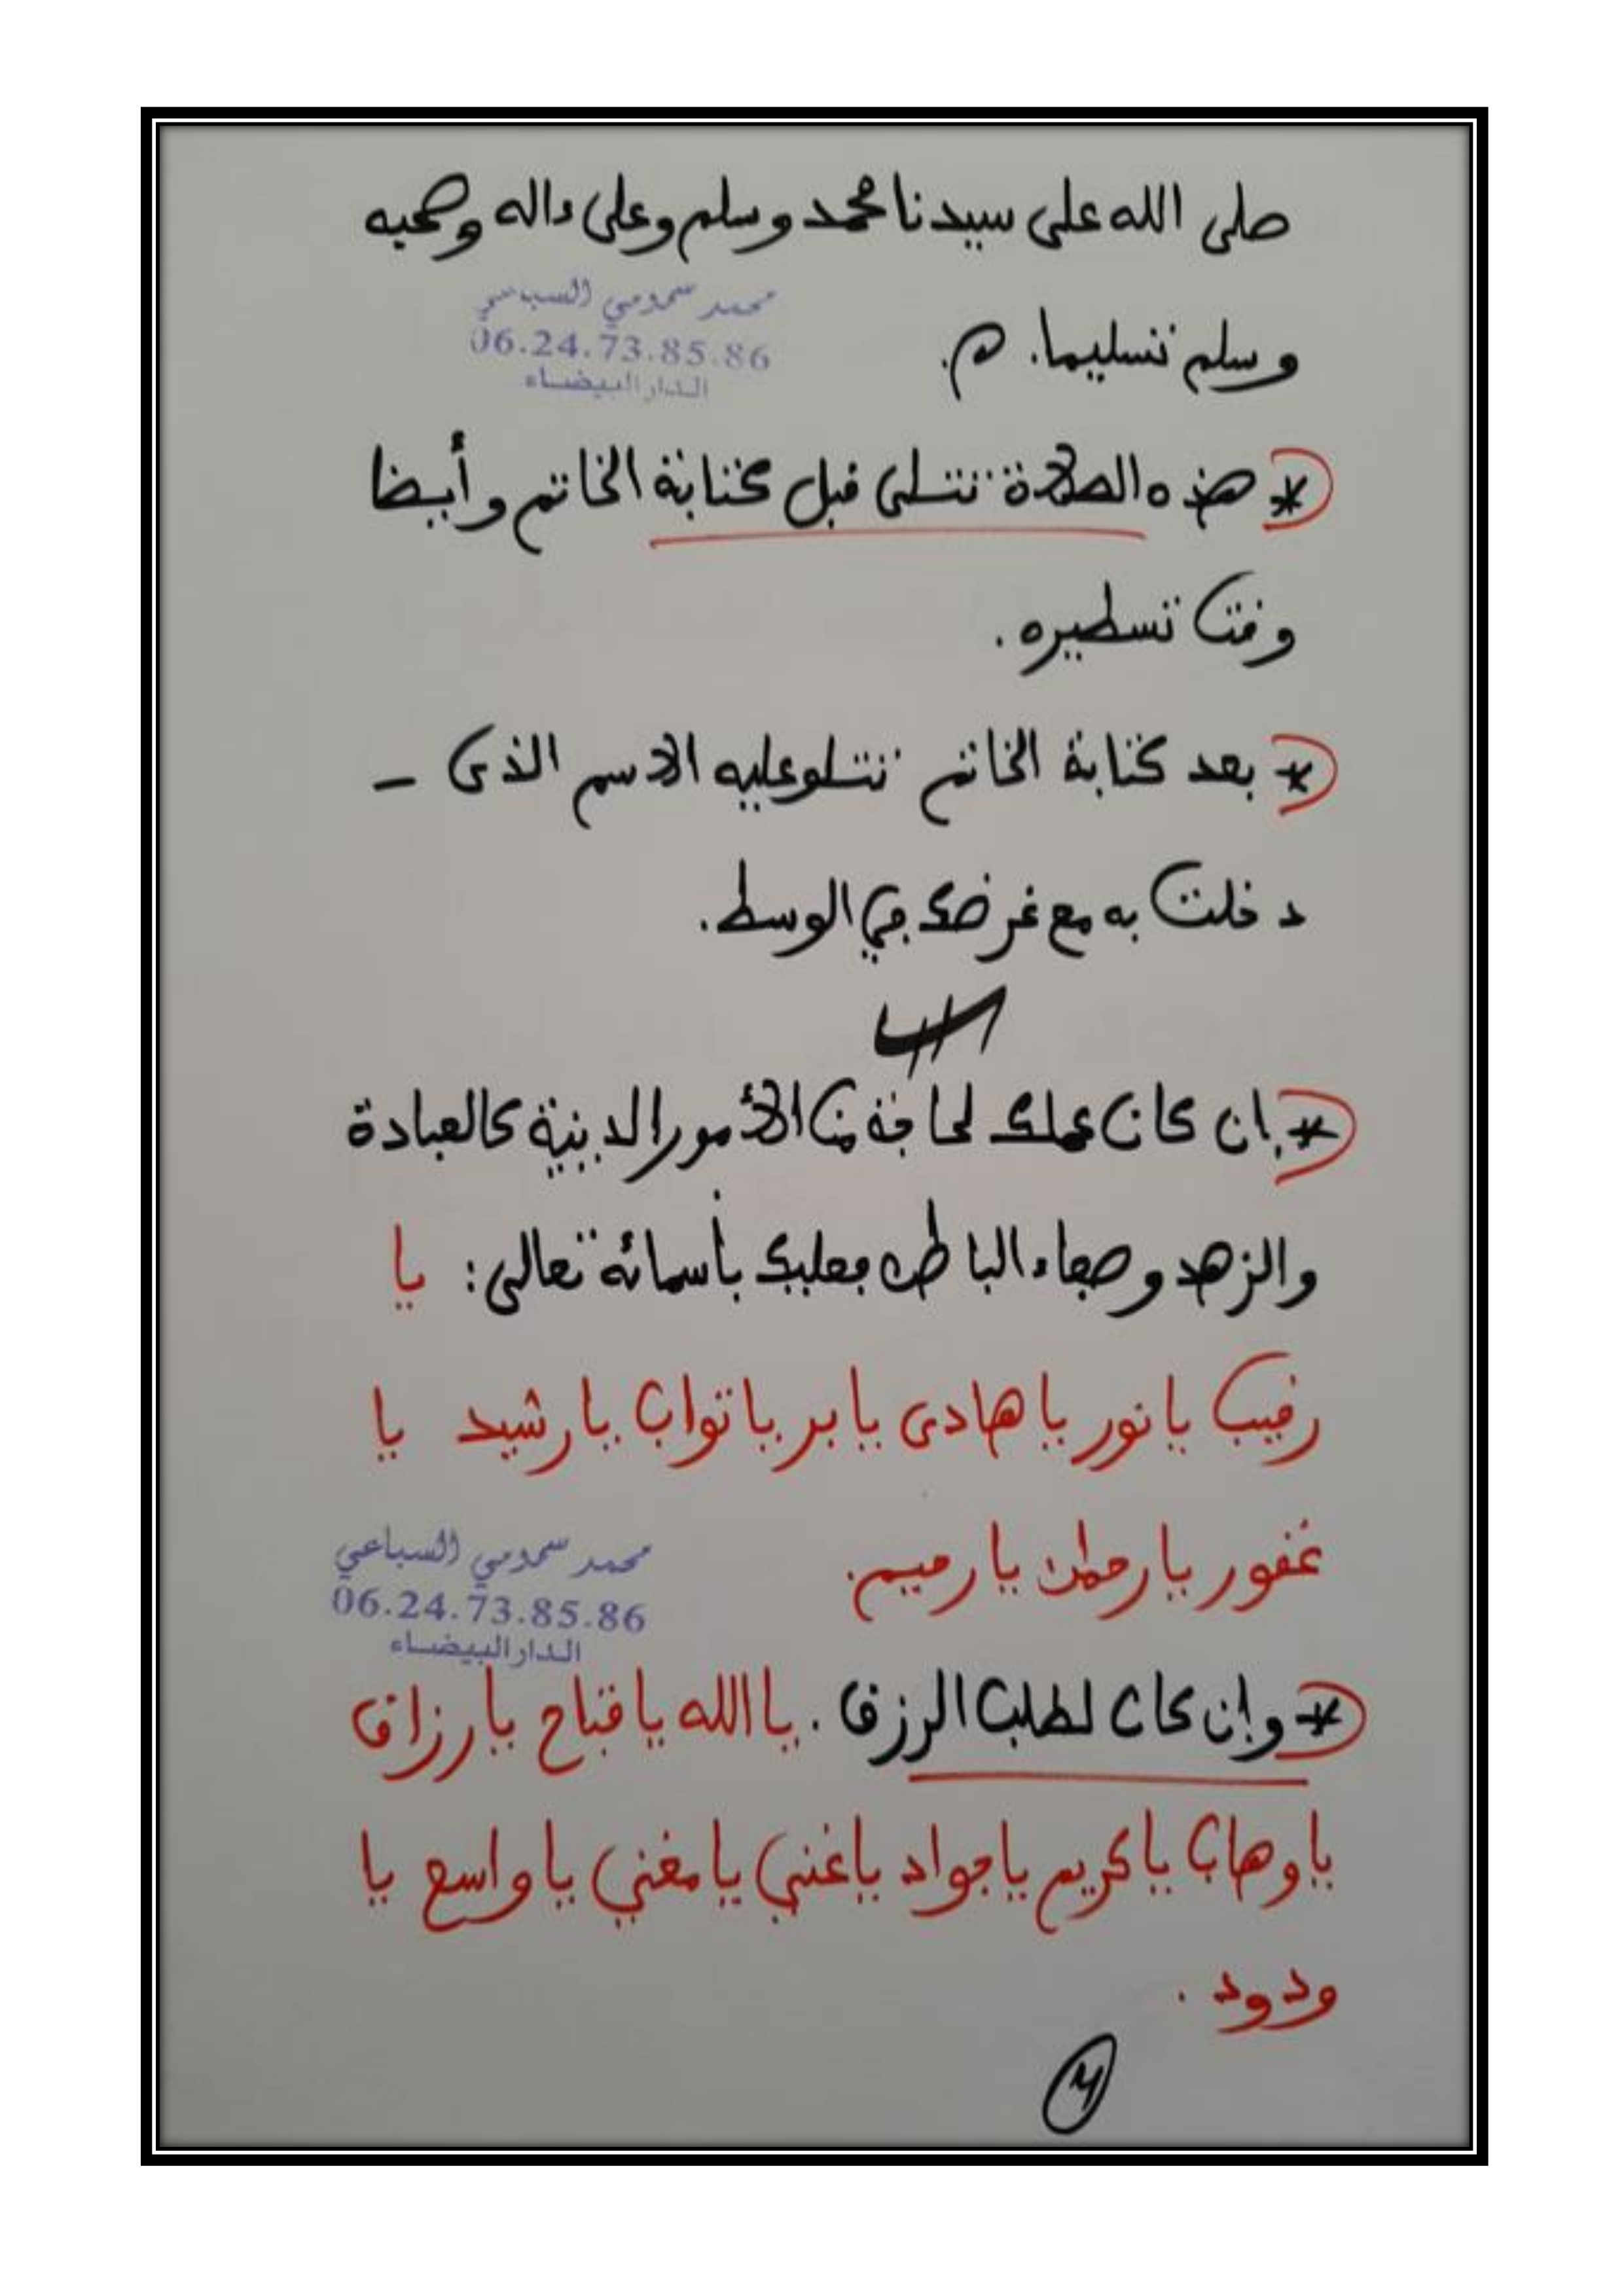 صلى الله على سيدنا محمد وسلم وعلى ءاله وصحبه
محمد سمومي السباعي
06.24.73.85.86
الدار البيضاء
وسلم تسليما. م.
* هذه الصلاة تتلى قبل كتابة الخاتم وأيضا
وقت تسطيره.
* بعد كتابة الخاتم تتلو عليه الاسم الذى -
دخلت به مع غرضك في الوسط.
* إن كان عملك لحاجة من الأمور الدينية كالعبادة
والزهد وصفاء الباطن فعليك بأسمائه تعالى: يا
رقيب يا نور يا هادى يا بر يا تواب يا رشيد يا
غفور يا رحمان يا رحيم.
محمد سمومي السباعي
06.24.73.85.86
الدار البيضاء
* وإن كان لطلب الرزق. يا الله يا فتاح يا رزاق
يا وهاب يا كريم يا جواد يا غني يا مغني يا واسع يا
ودود.